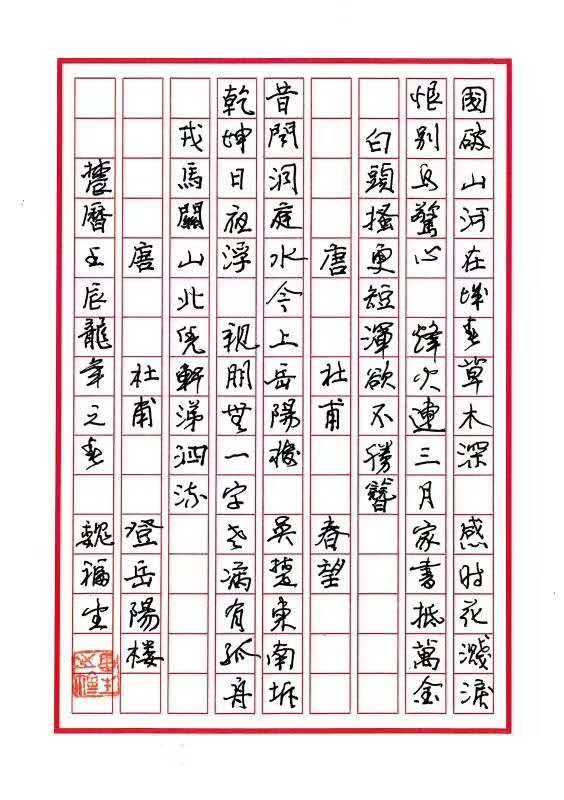 國破山河在城春草木深 感时花濺淚
恨别鸟驚心 烽火連三月 家書抵萬金
白頭搔更短渾欲不勝簪
唐 杜甫 春望
昔闻洞庭水今上岳陽楼 吴楚東南坼
乾坤日夜浮 親朋無一字老病有孤舟
戎馬關山北凭軒涕泗流
唐 杜甫 登岳陽楼
農曆壬辰龍年之春 魏福生